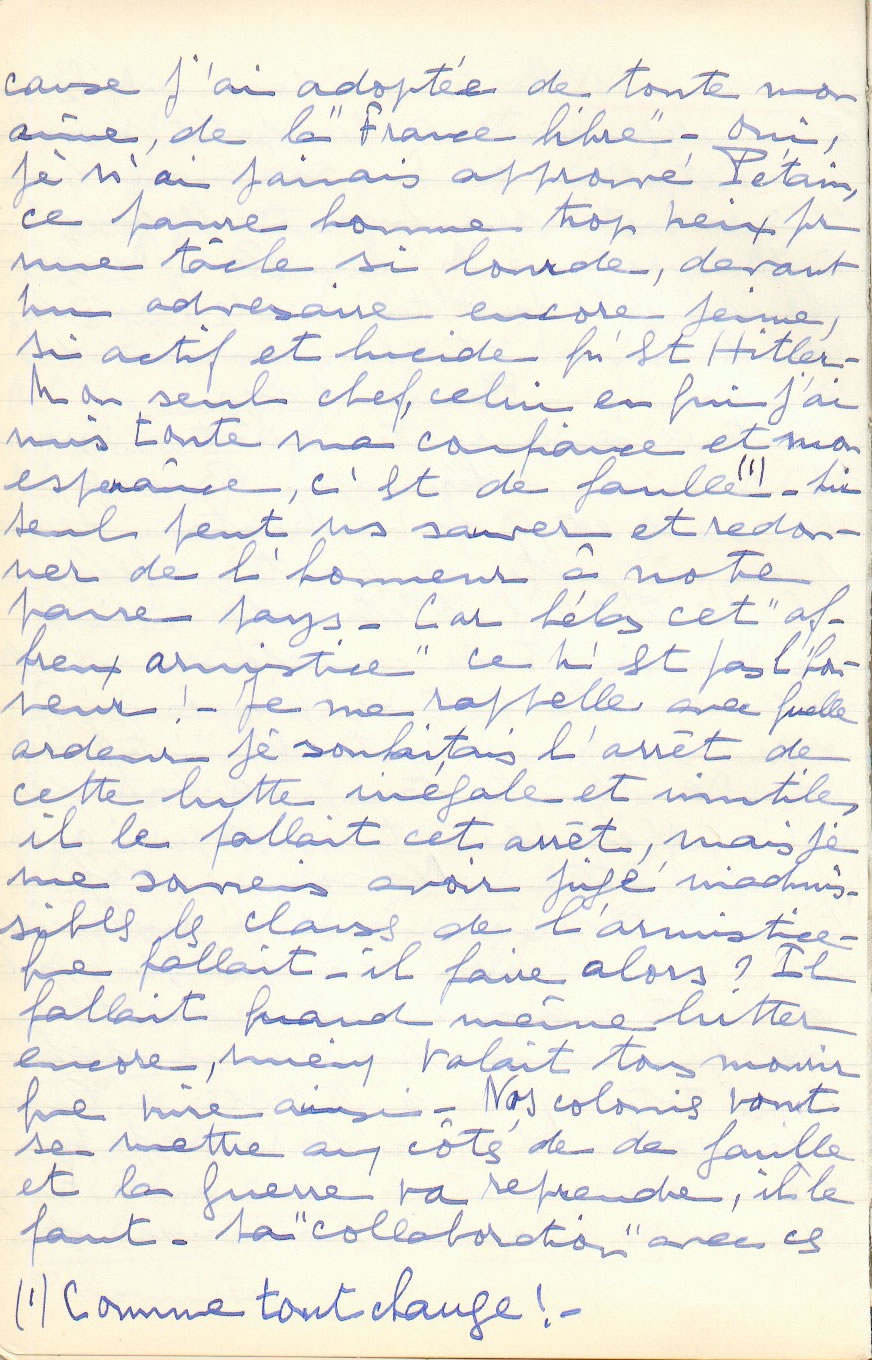 cause j'ai adoptée de toute mon
âme, de la "France libre" - Oui,
je n'ai jamais approuvé Pétain,
ce pauvre homme trop vieux pr
une tâche si lourde, devant
un adversaire encore jeune,
si actif et lucide qu'est Hitler -
Mon seul chef, celui en qui j'ai
mis toute ma confiance et mon
espérance, c'est de Gaulle (1) - lui
seul peut ns sauver et redon-
ner de l'honneur à notre
pauvre pays - Car hélas cet "af-
freux armistice" ce n'est pas l'hon-
neur ! - Je me rappelle avec quelle
ardeur je souhaitais l'arrêt de
cette lutte inégale et inutile,
il le fallait cet arrêt, mais je
me souviens avoir jugé inadmis-
sibles les clauses de l'armistice -
Que fallait-il faire alors ? Il
fallait quand même lutter
encore, mieux valait tous mourir
que vivre ainsi - Nos colonies vont
se mettre aux côtés de de Gaulle
et la guerre va reprendre, il le
faut - La "collaboration" avec ces
(1) Comme tout change ! -